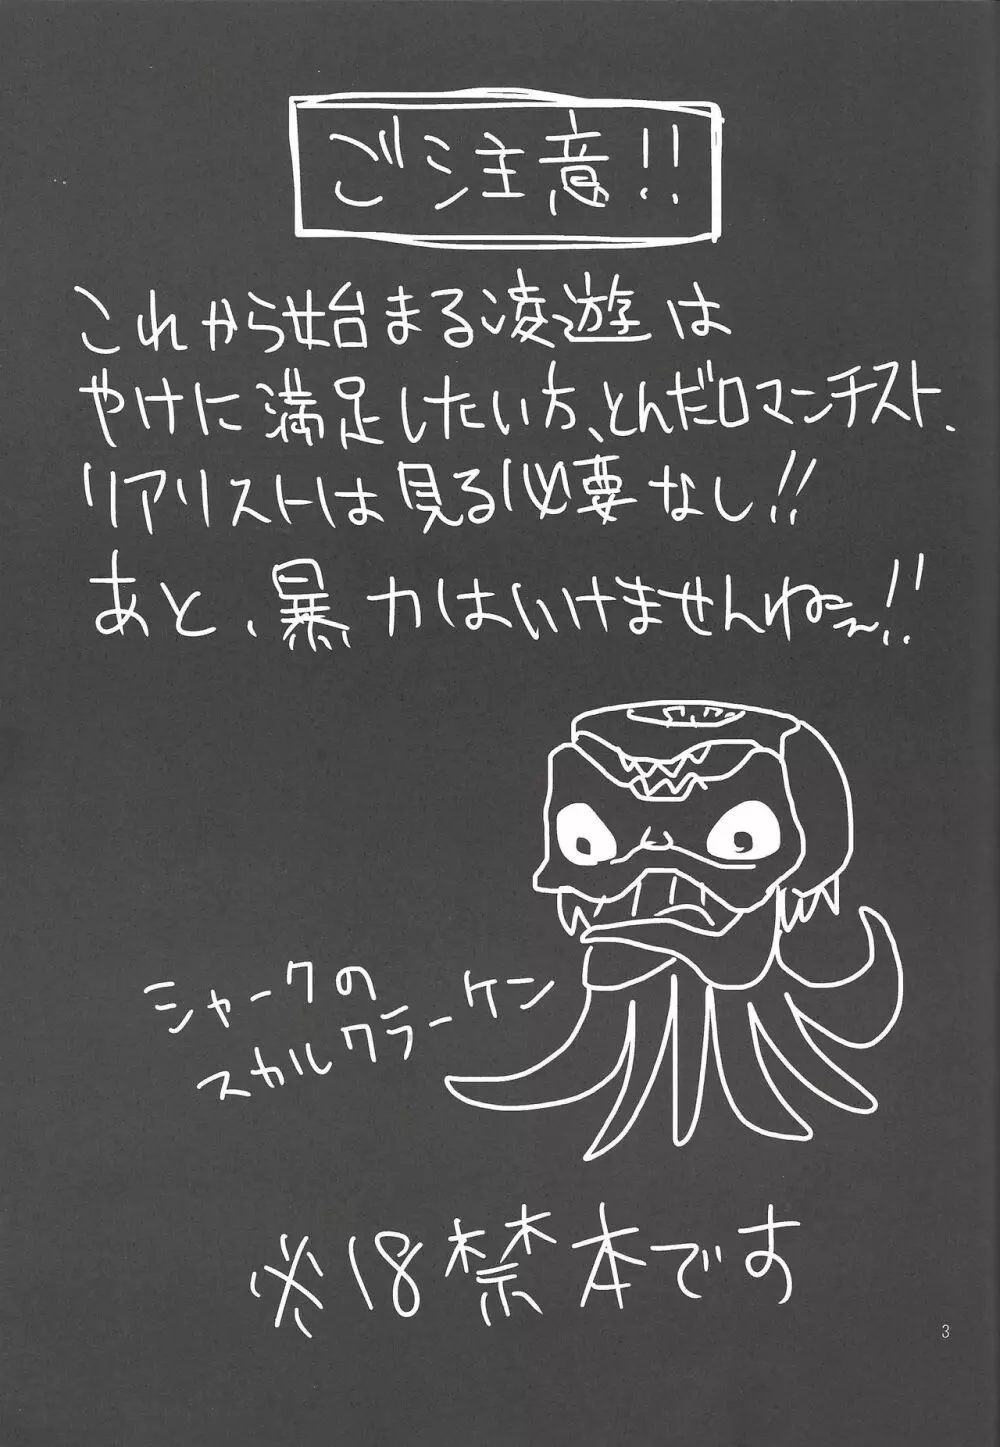 ご注意!!
これから始まる凌遊は
やけに満足したい方、とんだロマンチスト、
リアリストは見る必要なし!!
あと、暴力はいけませんねぇ!!
シャークの
スカルクラーケン
※18禁本です
3